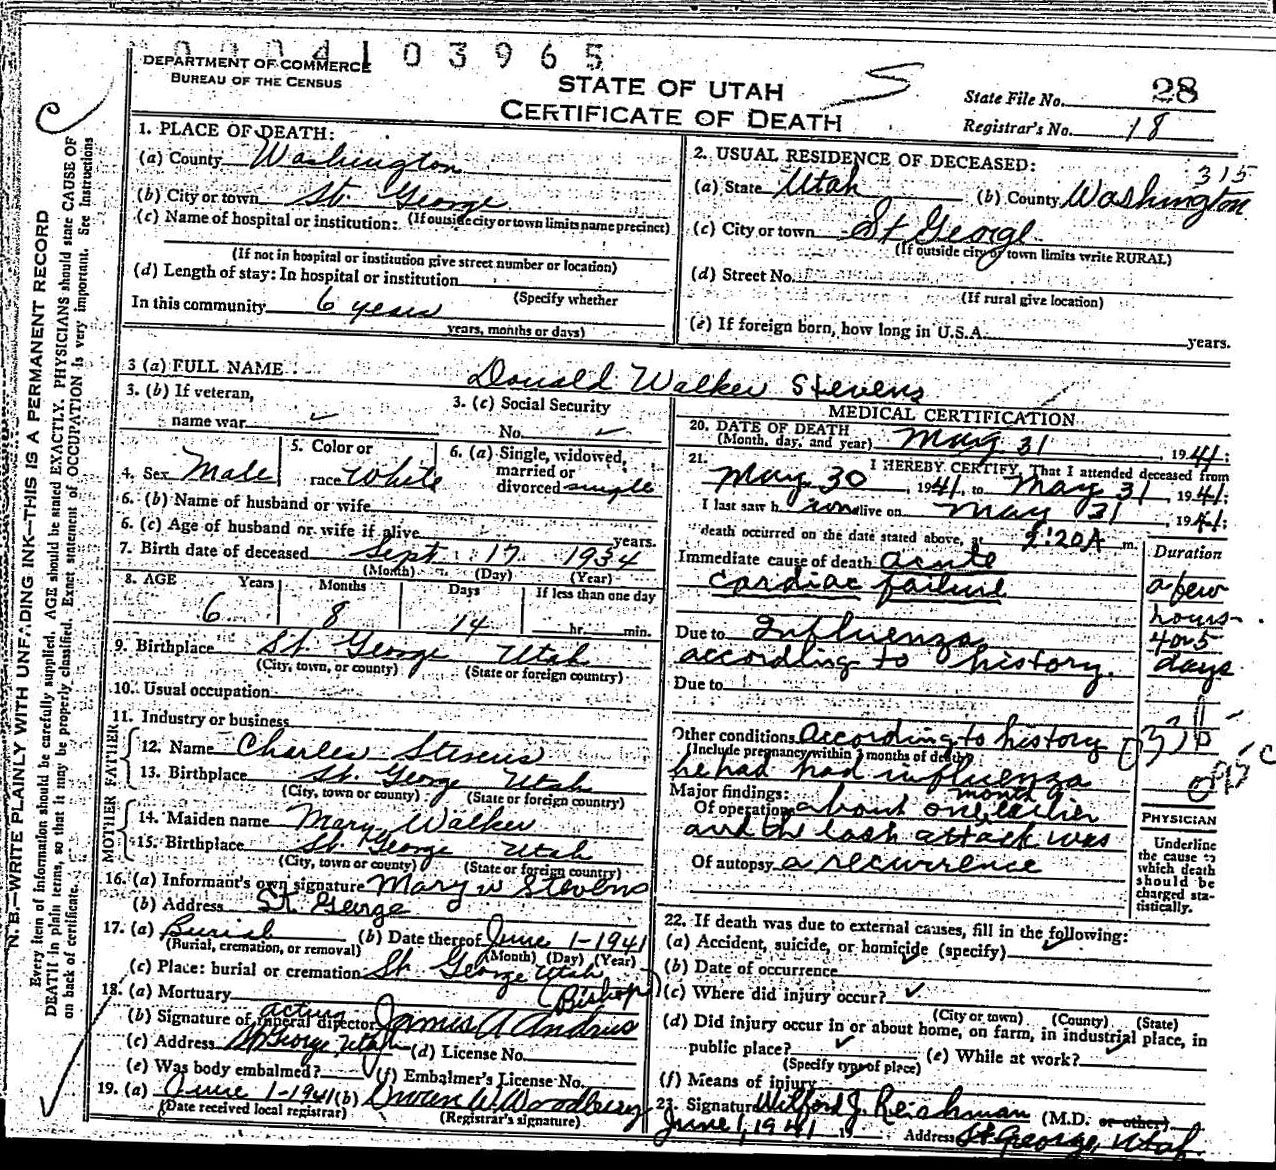 0004103965
DEPARTMENT OF COMMERCE
BUREAU OF THE CENSUS
STATE OF UTAH
CERTIFICATE OF DEATH
S
State File No. 28
Registrar's No. 18
N. B.—WRITE PLAINLY WITH UNFADING INK—THIS IS A PERMANENT RECORD
Every item of information should be carefully supplied. AGE should be stated EXACTLY. PHYSICIANS should state CAUSE OF
DEATH in plain terms, so that it may be properly classified. Exact statement of OCCUPATION is very important. See Instructions
on back of certificate.
1. PLACE OF DEATH:
(a) County Washington
(b) City or town St. George
(If outside city or town limits name precinct)
(c) Name of hospital or institution:
(If not in hospital or institution give street number or location)
(d) Length of stay: In hospital or institution
(Specify whether
In this community 6 years
years, months or days)
2. USUAL RESIDENCE OF DECEASED:
315
(a) State Utah (b) County Washington
(c) City or town St George
(If outside city or town limits write RURAL)
(d) Street No.
(If rural give location)
(e) If foreign born, how long in U.S.A. years.
3 (a) FULL NAME Donald Walker Stevens
3. (b) If veteran,
name war
3. (c) Social Security
No.
4. Sex Male
5. Color or
race White
6. (a) Single, widowed,
married or
divorced single
6. (b) Name of husband or wife
6. (c) Age of husband or wife if alive years.
7. Birth date of deceased Sept 17 1934
(Month) (Day) (Year)
8. AGE Years Months Days If less than one day
6 8 14 hr. min.
9. Birthplace St. George Utah
(City, town, or county) (State or foreign country)
10. Usual occupation
11. Industry or business
FATHER
12. Name Charles Stevens
13. Birthplace St. George Utah
(City, town or county) (State or foreign country)
MOTHER
14. Maiden name Mary Walker
15. Birthplace St. George Utah
(City, town or county) (State or foreign country)
16. (a) Informant's own signature Mary W Stevens
(b) Address St. George
17. (a) Burial (b) Date thereof June 1-1941
(Burial, cremation, or removal) (Month) (Day) (Year)
(c) Place: burial or cremation St. George Utah
18. (a) Mortuary (Bishop)
acting
(b) Signature of funeral director James A Andrus
(c) Address St George, Utah (d) License No.
(e) Was body embalmed? (f) Embalmer's License No.
19. (a) June 1-1941 (b) Owen W. Woodbury
(Date received local registrar) (Registrar's signature)
MEDICAL CERTIFICATION
20. DATE OF DEATH
(Month, day, and year) May 31, 1941;
21. I HEREBY CERTIFY, That I attended deceased from
May 30, 1941, to May 31, 1941;
I last saw him alive on May 31, 1941;
death occurred on the date stated above, at 9:20A m.
Duration
Immediate cause of death acute
cardiac failure
a few
hours
Due to Influenza
according to history.
4 or 5
days
Due to
Other conditions According to history
(Include pregnancy within 3 months of death)
he had had influenza
Major findings:
month
Of operation about one earlier
and the last attack was
Of autopsy a recurrence
PHYSICIAN
Underline
the cause to
which death
should be
charged sta-
tistically.
22. If death was due to external causes, fill in the following:
(a) Accident, suicide, or homicide (specify)
(b) Date of occurrence
(c) Where did injury occur?
(City or town) (County) (State)
(d) Did injury occur in or about home, on farm, in industrial place, in
public place? (e) While at work?
(Specify type of place)
(f) Means of injury
23. Signature Wilford J. Reichman (M.D. or other)
June 1, 1941 Address St. George, Utah